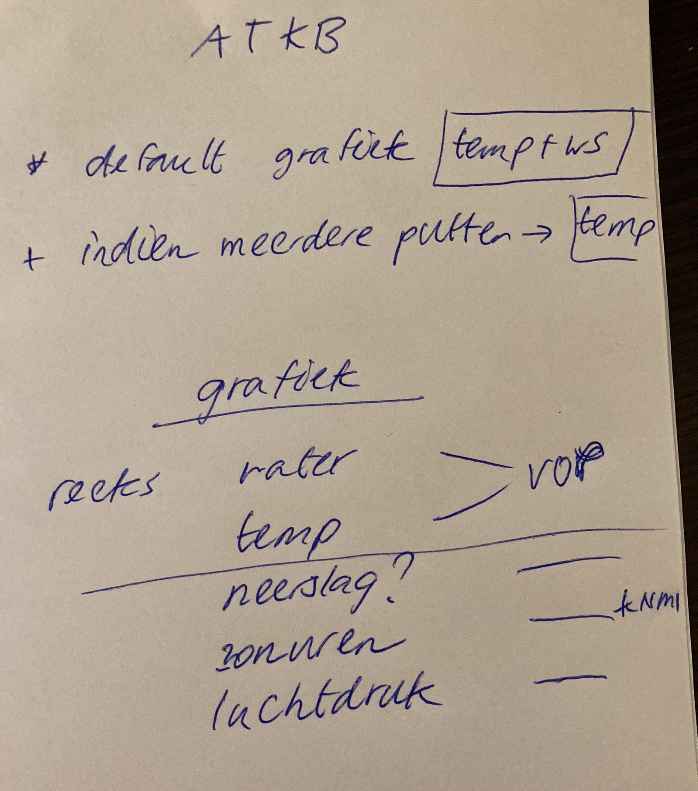 ATKB
* default grafiek temp + ws
+ indien meerdere putten → temp
grafiek
reeks water
temp
neerslag?
KNMI
zonuren
luchtdruk